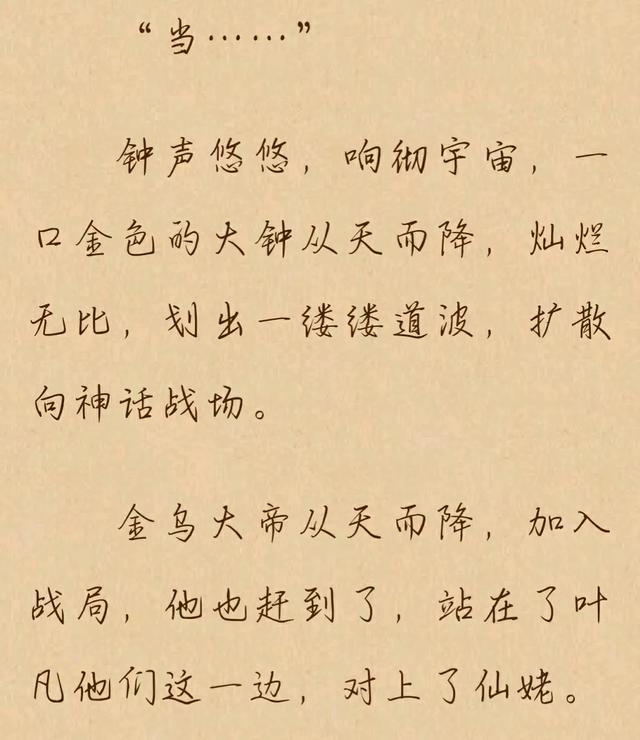 “当……”
钟声悠悠，响彻宇宙，一
口金色的大钟从天而降，灿烂
无比，划出一缕缕道波，扩散
向神话战场。
金乌大帝从天而降，加入
战局，他也赶到了，站在了叶
凡他们这一边，对上了仙姥。